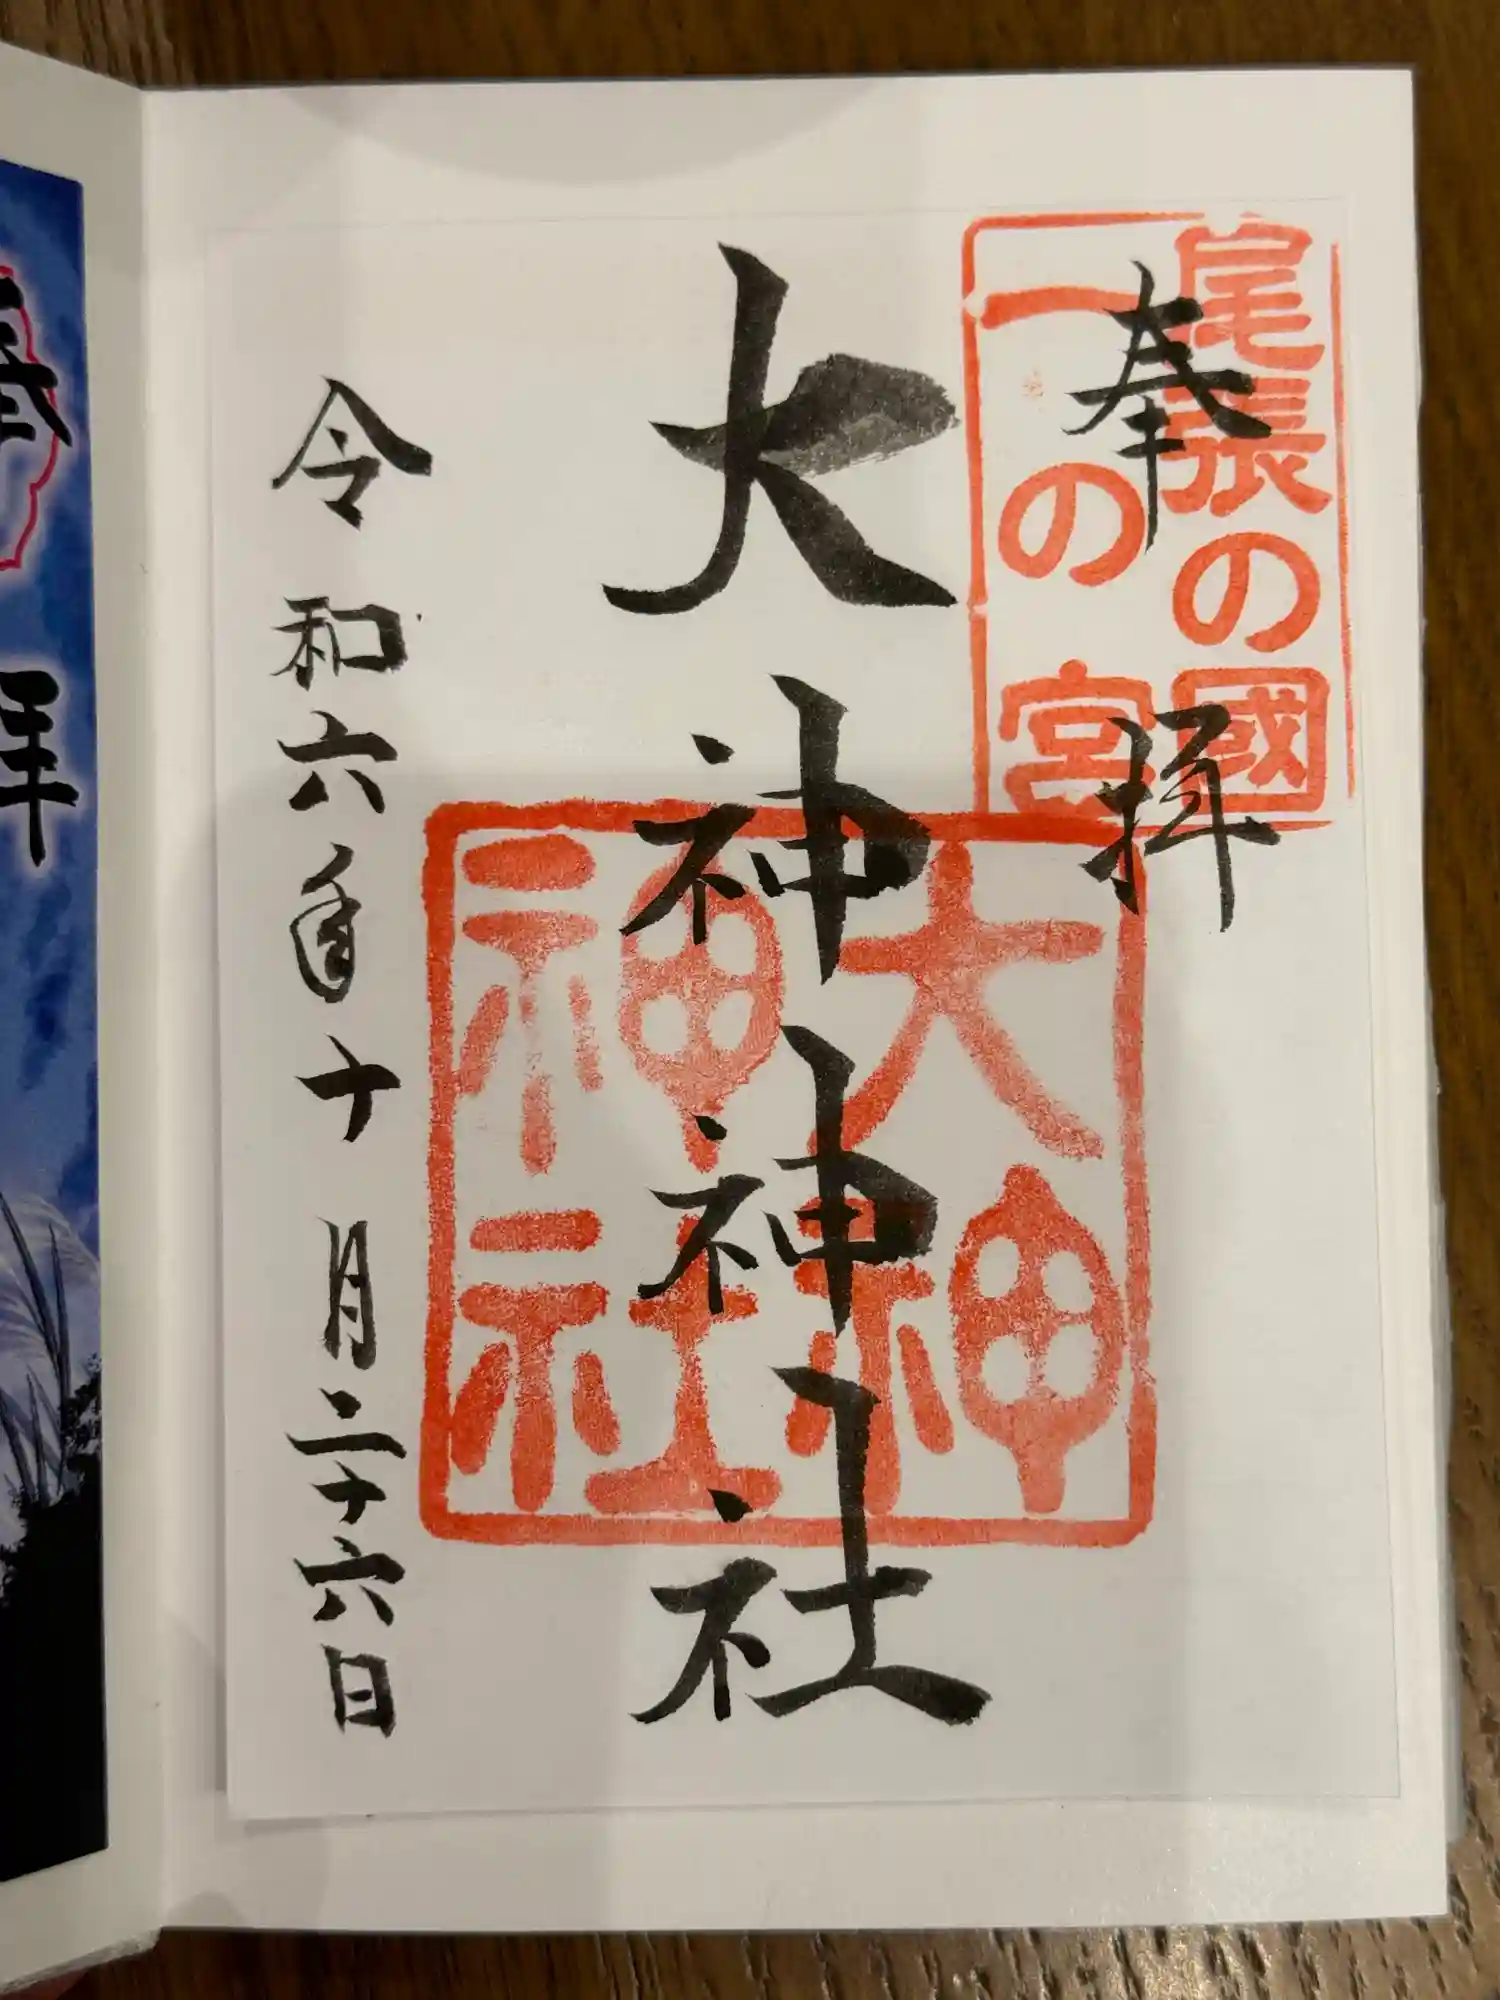 奉拝
尾張の國
一の宮
大神神社
大神
神社
令和六年十月二十六日
奉拝